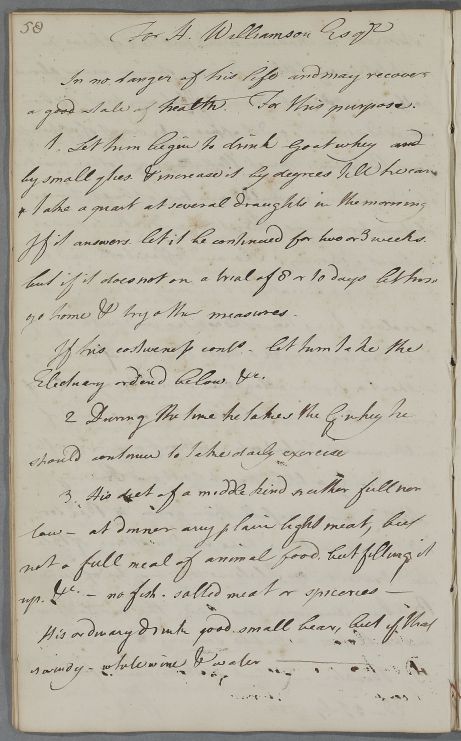 58
For A. Williamson Esqr
In no danger of his life and may recover
a good state of health. For this purpose.
1. Let him begin to drink Goat whey and
by small qties & increase it by degrees till he can
take a quart at several draughts in the morning
If it answers let it be continued for two or 3 weeks.
but if it does not on a trial of 8 or 10 days let him
go home & try other measures.
If his costiveness conts. - let him take the
Electuary ordered below &c.
2 During the time he takes the G. whey he
should continue to take daily exercise
3. His diet of a middle kind neither full nor
low - at dinner any plain light meat, but
not a full meal of animal food. but filling it
up. &c. - no fish. salted meat or spiceries -
His ordinary drink good small bear, but if that
is windy - white wine & water